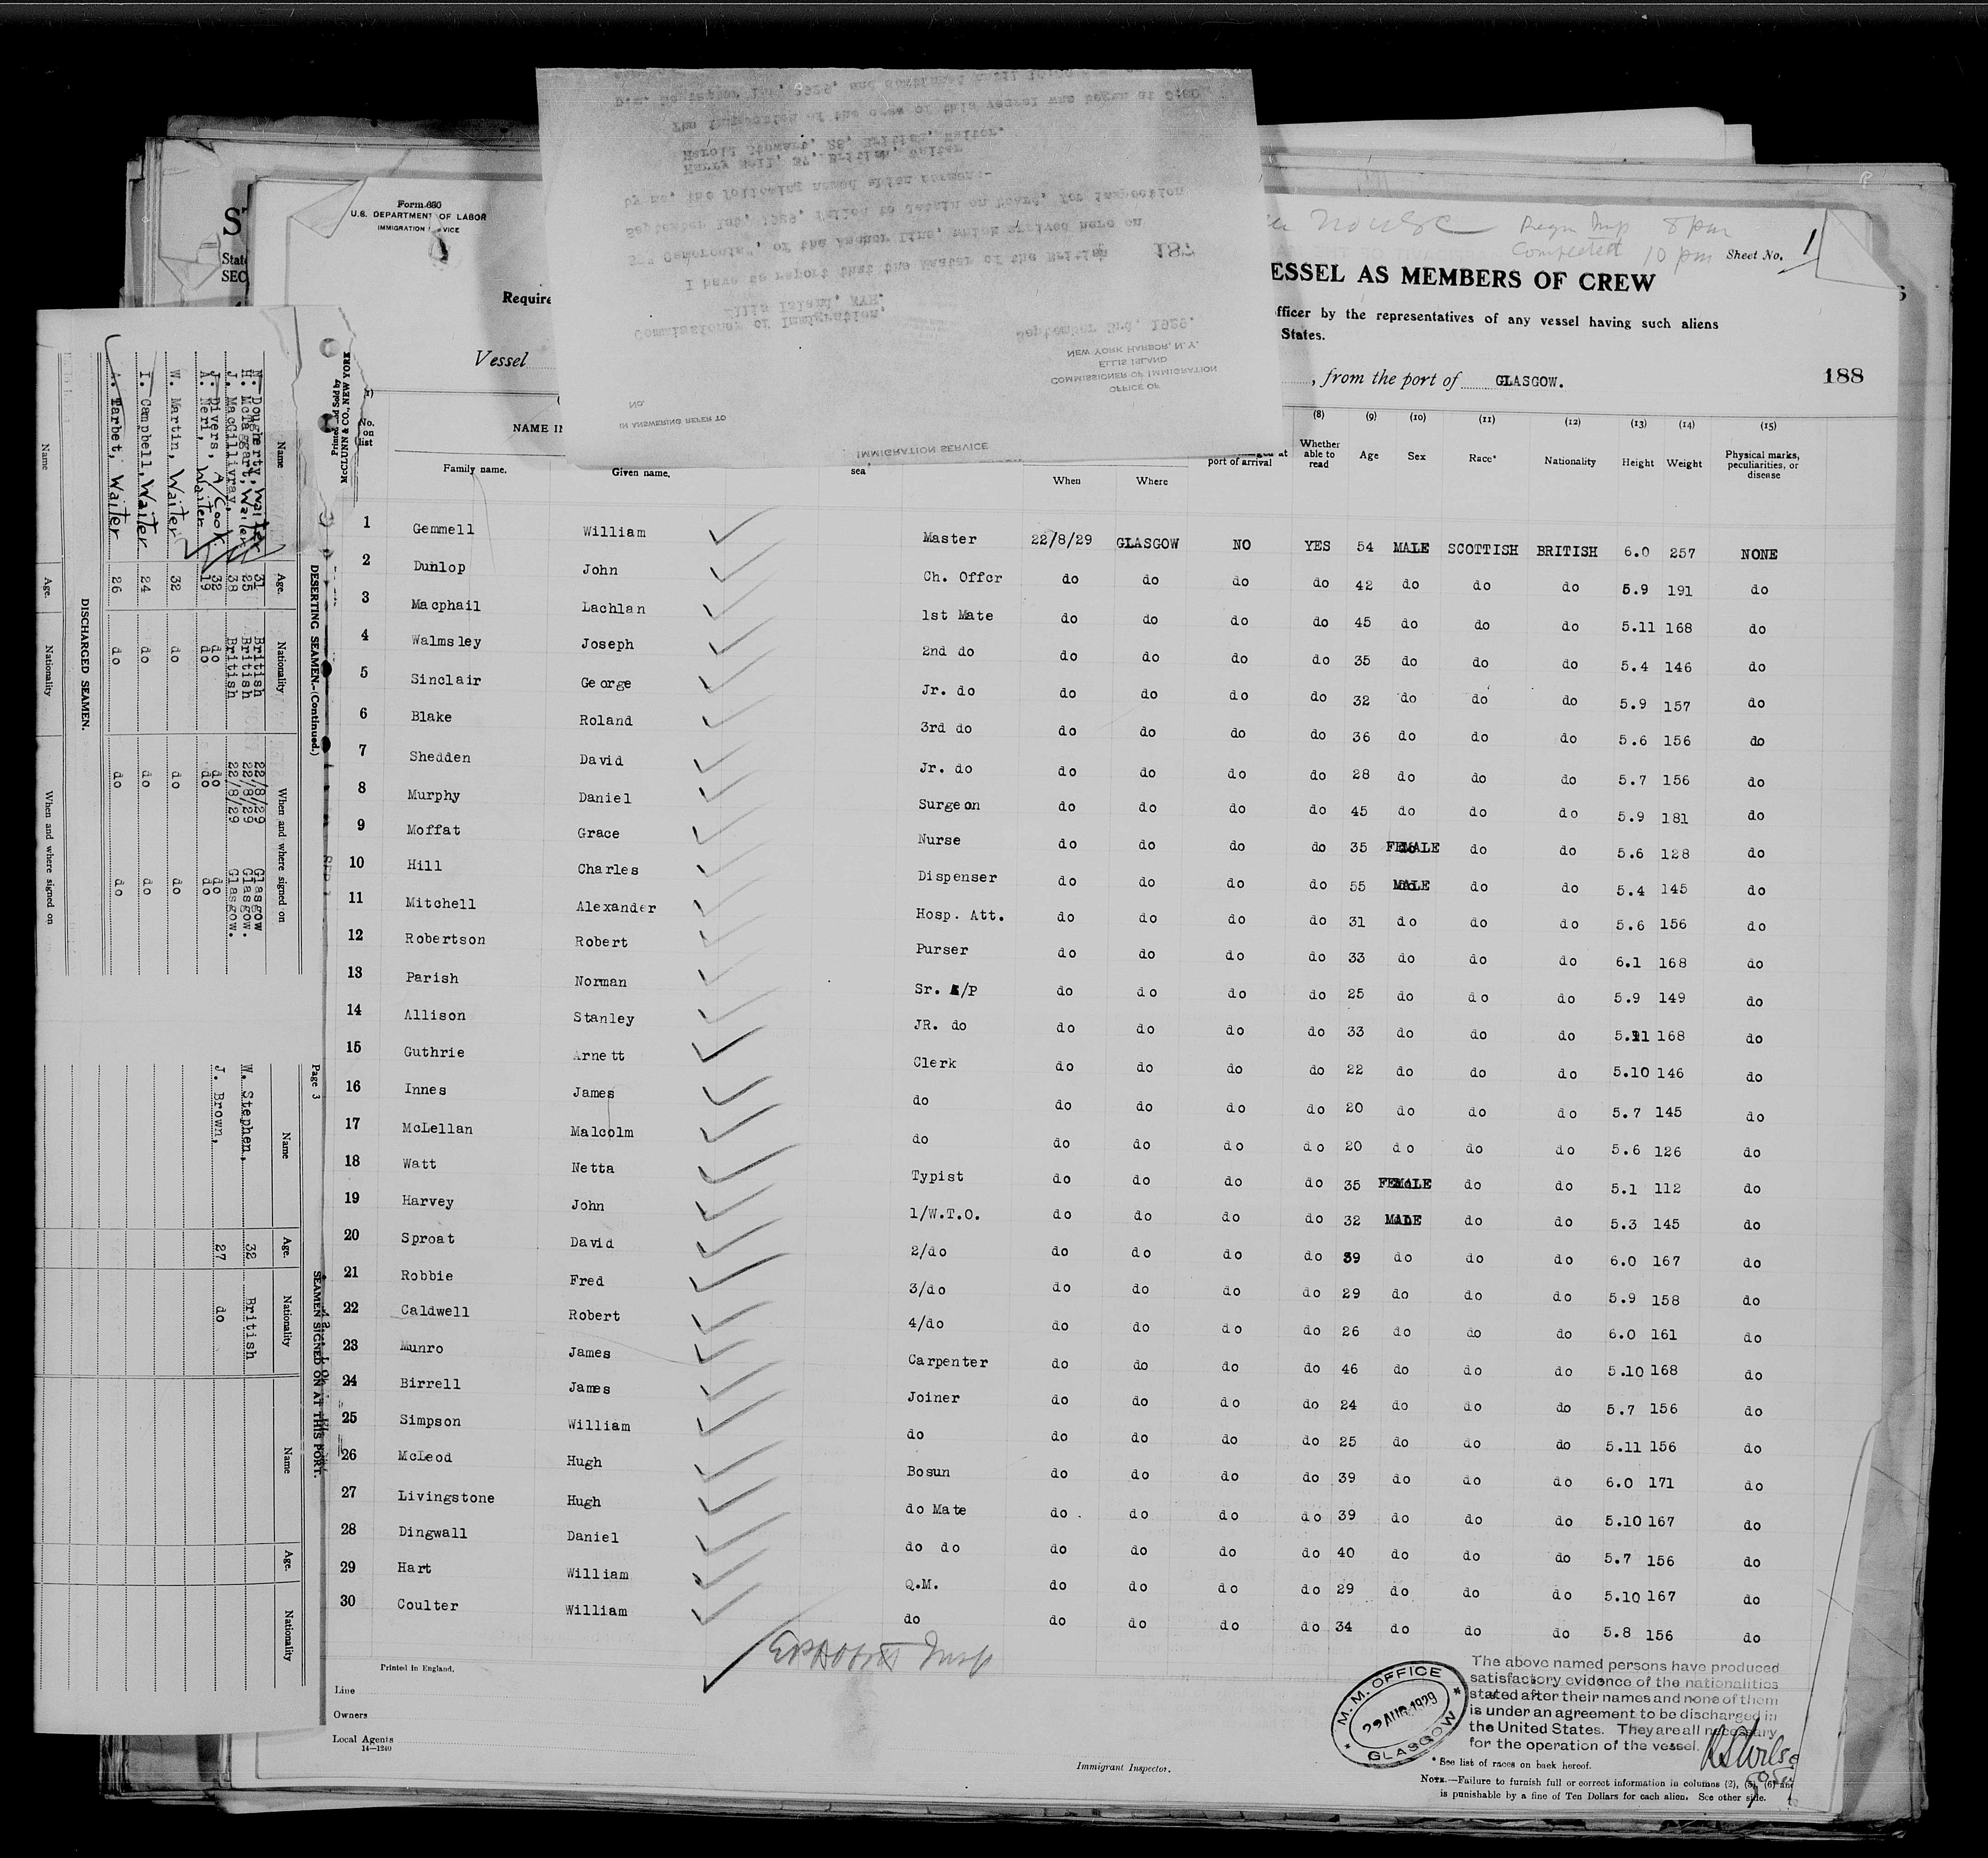 Form 680
U.S. DEPARTMENT OF LABOR
IMMIGRATION SERVICE
Sheet No. 1
ESSEL AS MEMBERS OF CREW
fficer by the representatives of any vessel having such aliens
States.
Vessel
, from the port of GLASGOW.
188
No. on list
Family name.
Given name.
When
Where
port of arrival
(8) Whether able to read
(9) Age
(10) Sex
(11) Race*
(12) Nationality
(13) Height
(14) Weight
(15) Physical marks, peculiarities, or disease
1 Gemmell William Master 22/8/29 GLASGOW NO YES 54 MALE SCOTTISH BRITISH 6.0 257 NONE
2 Dunlop John Ch. Offcr do do do do 42 do do do 5.9 191 do
3 Macphail Lachlan 1st Mate do do do do 45 do do do 5.11 168 do
4 Walmsley Joseph 2nd do do do do do 35 do do do 5.4 146 do
5 Sinclair George Jr. do do do do do 32 do do do 5.9 157 do
6 Blake Roland 3rd do do do do do 36 do do do 5.6 156 do
7 Shedden David Jr. do do do do do 28 do do do 5.7 156 do
8 Murphy Daniel Surgeon do do do do 45 do do do 5.9 181 do
9 Moffat Grace Nurse do do do do 35 FEMALE do do 5.6 128 do
10 Hill Charles Dispenser do do do do 55 MALE do do 5.4 145 do
11 Mitchell Alexander Hosp. Att. do do do do 31 do do do 5.6 156 do
12 Robertson Robert Purser do do do do 33 do do do 6.1 168 do
13 Parish Norman Sr. /P do do do do 25 do do do 5.9 149 do
14 Allison Stanley JR. do do do do do 33 do do do 168 do
15 Guthrie Arnett Clerk do do do do 22 do do do 5.10 146 do
16 Innes James do do do do do 20 do do do 5.7 145 do
17 McLellan Malcolm do do do do do 20 do do do 5.6 126 do
18 Watt Netta Typist do do do do 35 FEMALE do do 5.1 112 do
19 Harvey John 1/W.T.O. do do do do 32 MALE do do 5.3 145 do
20 Sproat David 2/do do do do do 39 do do do 6.0 167 do
21 Robbie Fred 3/do do do do do 29 do do do 5.9 158 do
22 Caldwell Robert 4/do do do do do 26 do do do 6.0 161 do
23 Munro James Carpenter do do do do 46 do do do 5.10 168 do
24 Birrell James Joiner do do do do 24 do do do 5.7 156 do
25 Simpson William do do do do do 25 do do do 5.11 156 do
26 McLeod Hugh Bosun do do do do 39 do do do 6.0 171 do
27 Livingstone Hugh do Mate do do do do 39 do do do 5.10 167 do
28 Dingwall Daniel do do do do do do 40 do do do 5.7 156 do
29 Hart William Q.M. do do do do 29 do do do 5.10 167 do
30 Coulter William do do do do do 34 do do do 5.8 156 do
Printed in England.
Line
Owners
Local Agents
14—1240
Immigrant Inspector.
M.M. OFFICE
AUG 1929
GLASGOW
The above named persons have produced
satisfactory evidence of the nationalities
stated after their names and none of them
is under an agreement to be discharged in
the United States. They are all necessary
for the operation of the vessel.
* See list of races on back hereof.
NOTE.—Failure to furnish full or correct information in columns (2), (5), (6) and
is punishable by a fine of Ten Dollars for each alien. See other side.
IMMIGRATION SERVICE
IN ANSWERING REFER TO
No.
OFFICE OF
COMMISSIONER OF IMMIGRATION
ELLIS ISLAND
NEW YORK HARBOR, N.Y.
September 3rd, 1929.
Commissioner of Immigration,
Ellis Island, NYH.
187
I have to report that the Master of the British
of the Anchor Line, which arrived here on
September 1st, 1929, failed to detain on board, for inspection
by me, the following named alien seamen:-
Harry 37, British, Waiter
Harold Stewart, 28, British, Waiter.
The inspection of the crew of this vessel was begun at
Printed and Sold by
McCLUNN & CO., NEW YORK
DESERTING SEAMEN.—(Continued.)
Name Age. Nationality When and where signed on
N. Dougherty, Waiter 31 British 22/8/29 Glasgow
H. McTaggart, Waiter 25 British 22/8/29 Glasgow.
J. MacGillivray, 38 British 22/8/29 Glasgow.
J. Divers, A/Cook 32 do do do
A. Neri, Waiter 19 do do do
W. Martin, Waiter 32 do do do
I. Campbell, Waiter 24 do do do
A. Tarbet, Waiter 26 do do do
DISCHARGED SEAMEN.
Name Age. Nationality When and where signed on
Page 3
SEAMEN SIGNED ON AT THIS PORT.
Name Age. Nationality Name Age. Nationality
W. Stephen, 32 British
J. Brown, 27 do